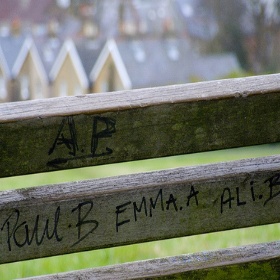 A.P
Paul.B EMMA.A ALI.B